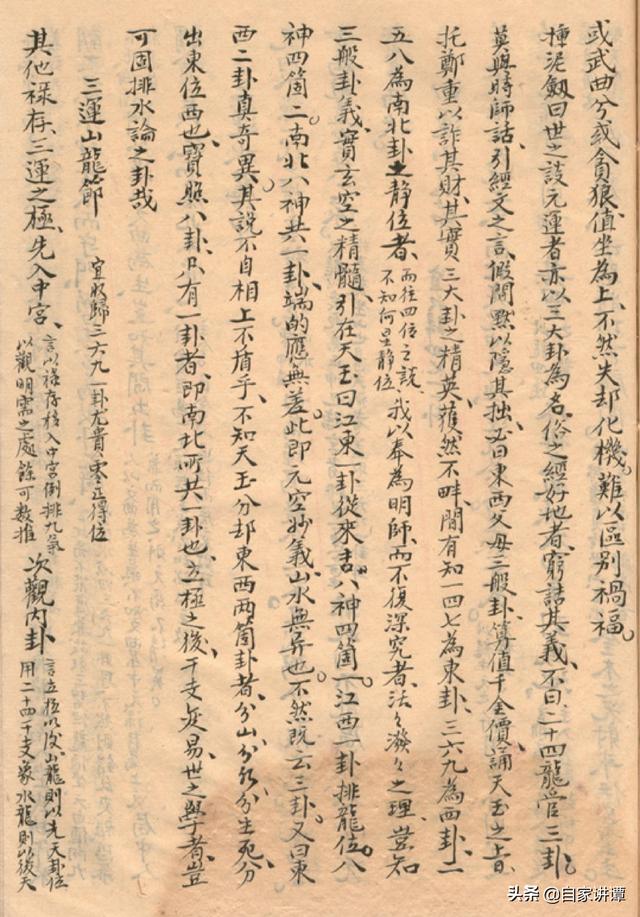 或武曲兮或貪狼值坐為上、不然失却化機、難以區別禍福。
種泥劔曰世之談元運者亦以三大卦為名、俗之經好地者、窮詰其義、不曰、二十四龍管三卦、
莫與時師話、引經文之言、假閉黙以隱其拙、必曰東西父母三般卦、算值千金價、誦天玉之上旨、
托鄭重以詐其財、其實三大卦之精英、䕶然不畔、間有知一四七為東卦、三六九為西卦、二
五八為南北卦之靜位者、而往四位之說、不知何星靜位、我以奉為明師、而不復深究者、活々潑々之理、豈知
三般卦義、實玄空之精髓、引在天玉曰江東一卦從來吉。八神四箇一、江西一卦排龍位。八
神四箇二。南北八神共一卦、端的應無差。此即元空妙義、山水無异也。不然既云三卦、又曰東
西二卦真奇異。其說不自相上不盾乎、不知天玉分却東西兩箇卦者、分山分水、分生死、分
出東位西也、寶照八卦、只有一卦者、即南北所共一卦也、立極之後、干支交易、世之學者豈
可固排水論之卦哉
三運山龍節 宜收歸三六九一卦尤貴、零正得位
其他祿存、三運之極、先入中宮、言以祿存移入中宮倒排九氣以觀明需之處餘可数推 次觀內卦 言立極以後、山龍則以先天卦位用二十四干支象水龍則以後天
头条 @自家讲谭